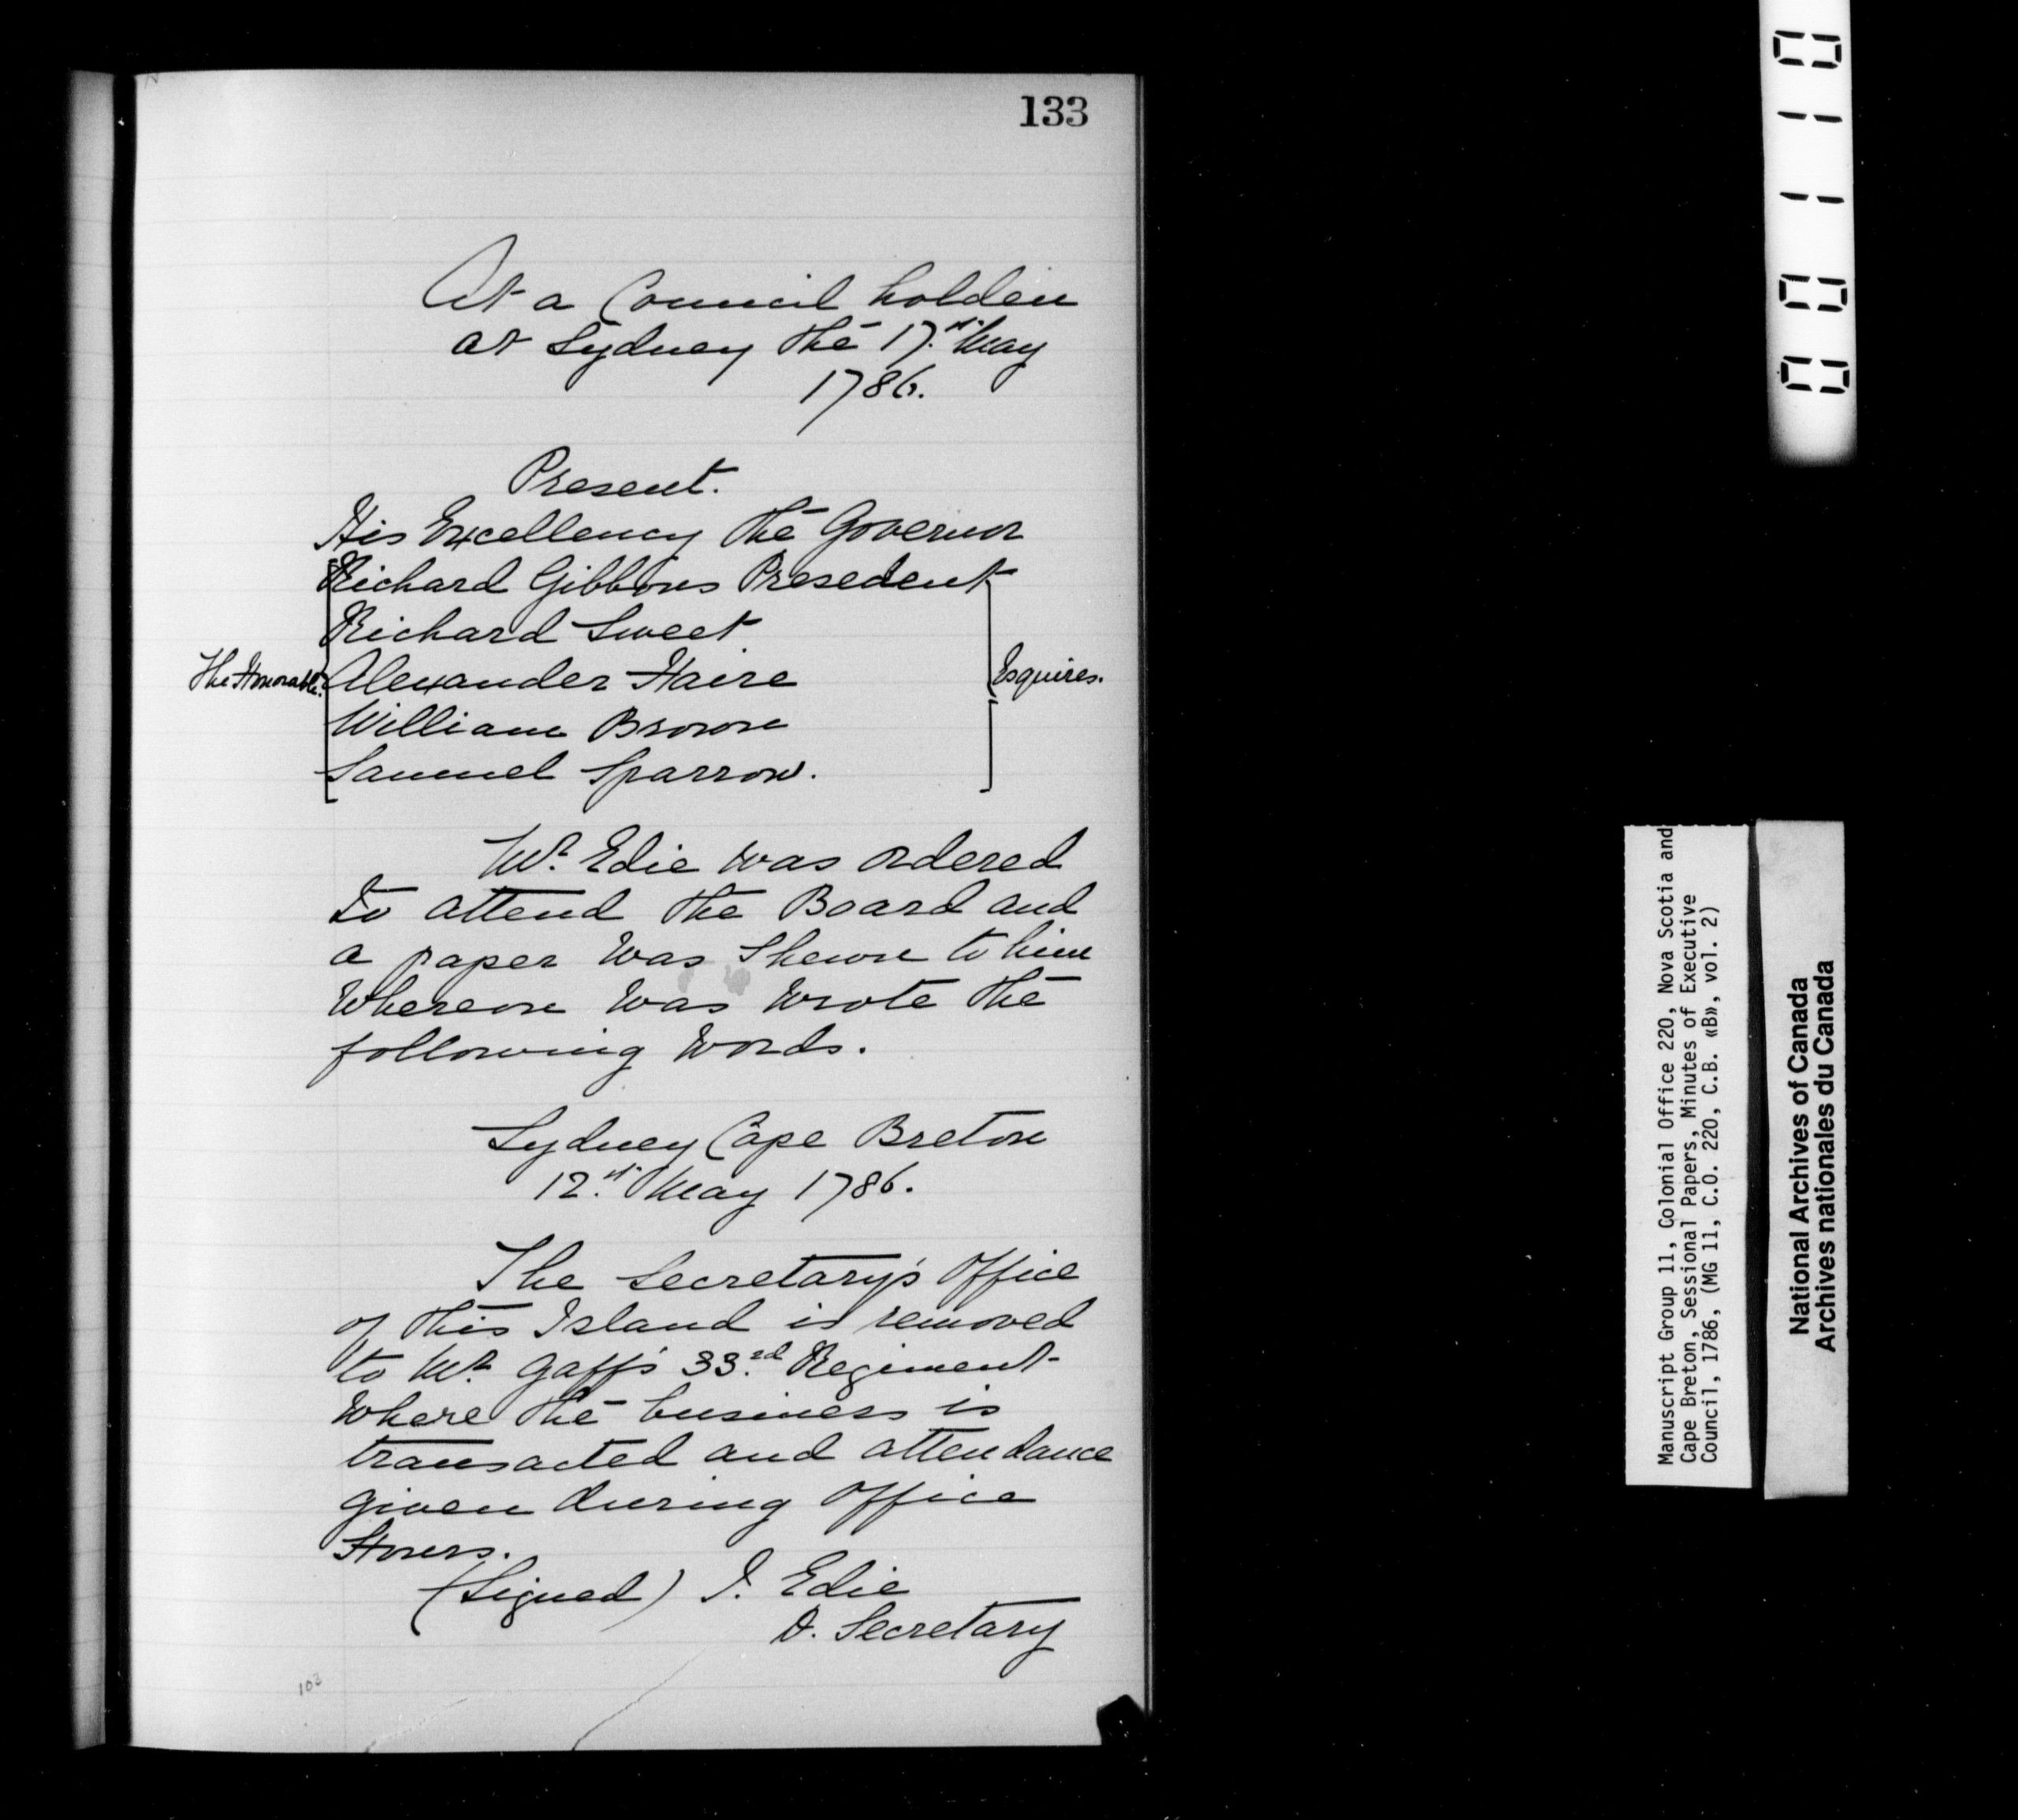 133
At a Council holden
at Sydney the 17th May
1786.
Present.
His Excellency the Governor
Richard Gibbons Presedent
Richard Sweet
The Honorable. Alexander Haire Esquires.
William Brown
Samuel Sparrow.
Mr. Edie was ordered
to attend the Board and
a paper was Shewn to him
Whereon was wrote the
following words.
Sydney Cape Breton
12th May 1786.
The Secretary's Office
of this Island is removed
to Mr. Gaff's 33rd Regiment
where the business is
transacted and attendance
given during Office
Hours.
(Signed) I. Edie
D. Secretary
103
001110
Manuscript Group 11, Colonial Office 220, Nova Scotia and
Cape Breton, Sessional Papers, Minutes of Executive
Council, 1786, (MG 11, C.O. 220, C.B. «B», vol. 2)
National Archives of Canada
Archives nationales du Canada